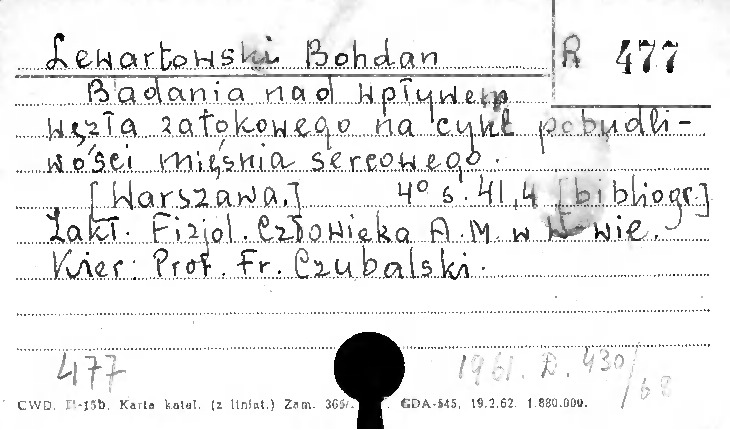 Lewartowski Bohdan R 477
Badania nad wpływem
węzła zatokowego na cykl pobudli-
wości mięśnia sercowego.
[Warszawa.] 4° s. 41,4 [bibliogr.]
Zakł. Fizjol. Człowieka A.M. w W-wie.
Kier: Prof. Fr. Czubalski.
477 1961. D. 430/68
CWD. Karta katal. (z liniat.) Zam. GDA-545, 19.2.62. 1.880.000.